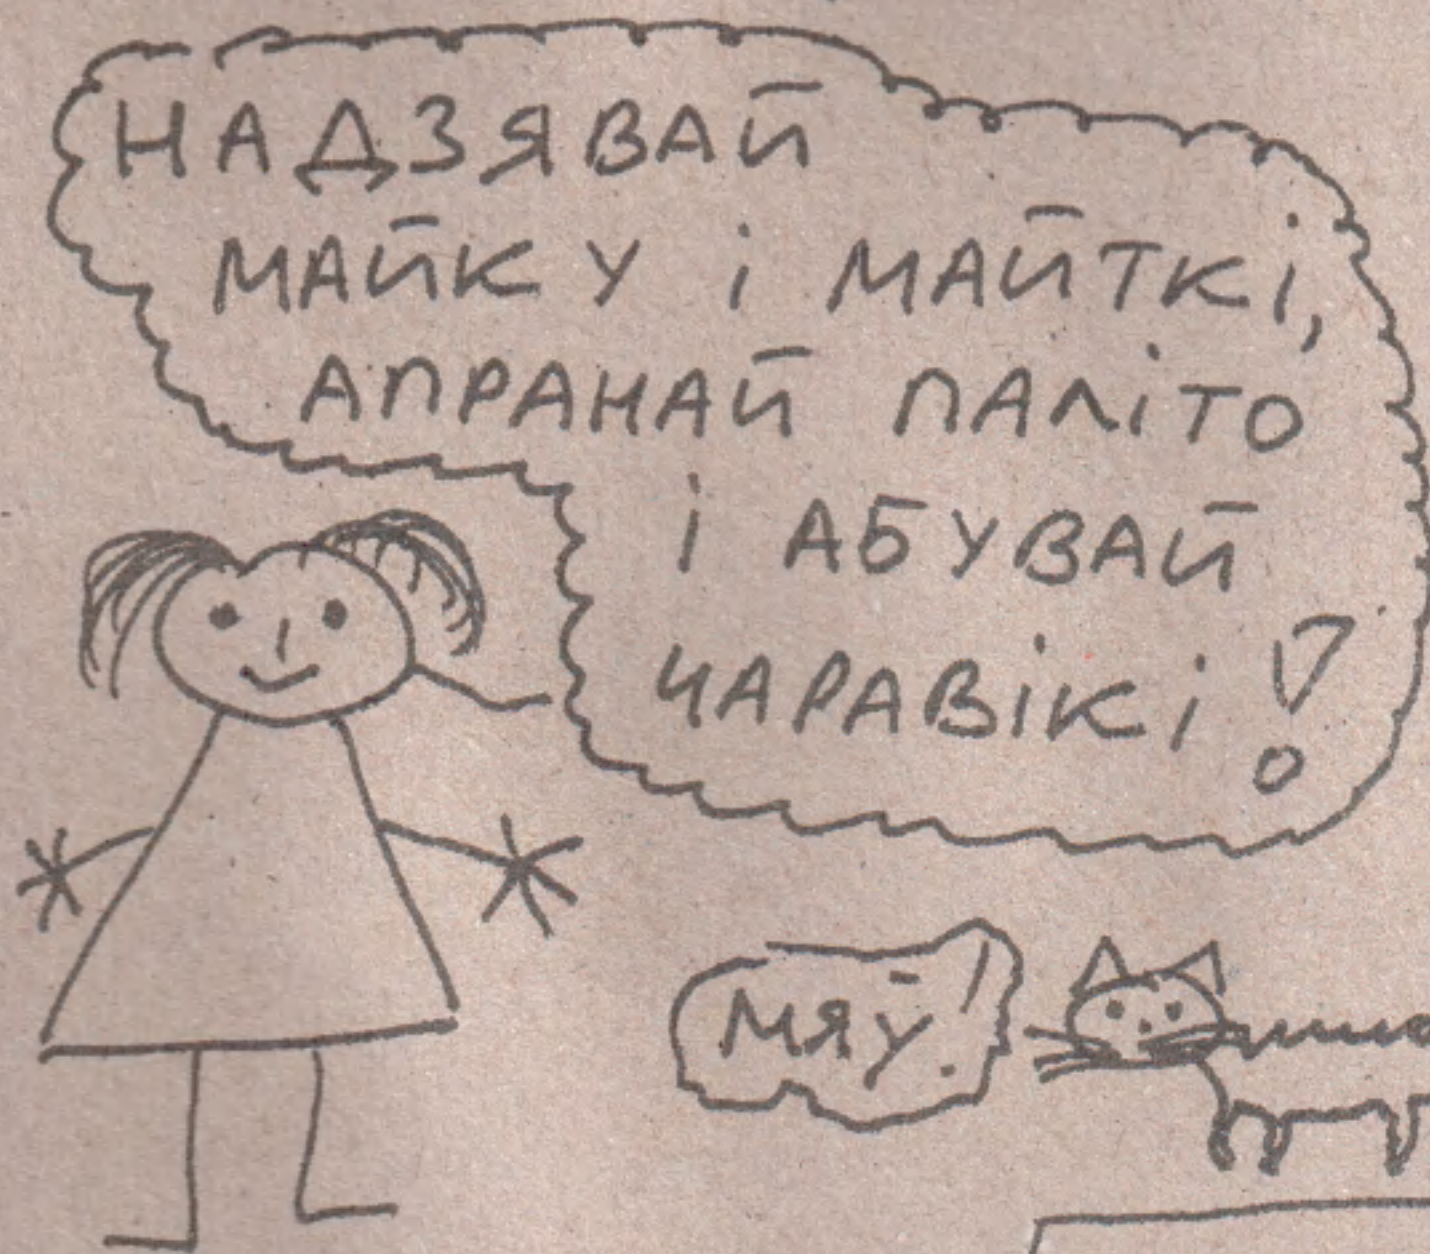 НАДЗЯВАЙ
МАЙКУ і МАЙТКІ,
АПРАНАЙ ПАЛІТО
І АБУВАЙ
ЧАРАВІКІ!
МЯЎ!